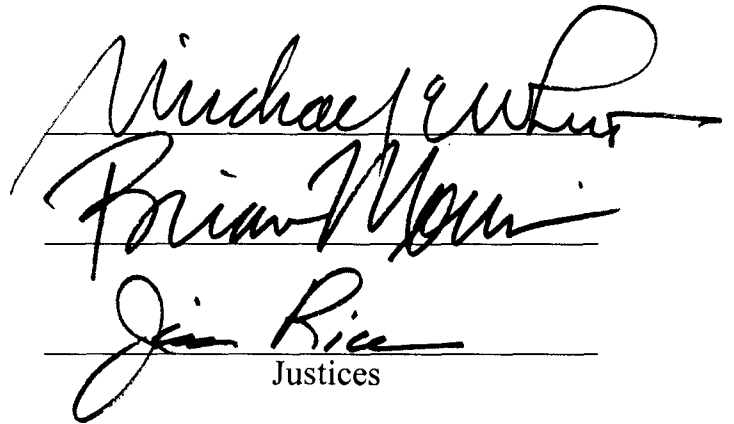 Michael E Wheat
Brian Morris
Jim Rice
Justices